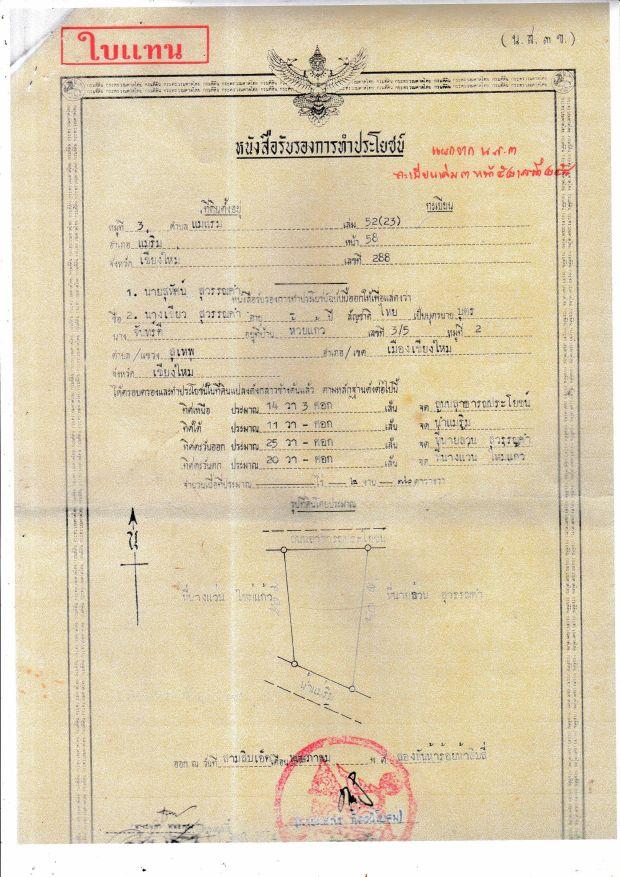 ใบแทน
(น.ส.๓ ข.)
หนังสือรับรองการทำประโยชน์
ที่ดินตั้งอยู่ ทะเบียน
หมู่ที่ 3. ตำบล แม่แรม เล่ม 52(23)
อำเภอ แม่ริม หน้า 58
จังหวัด เชียงใหม่ เลขที่ 288
หนังสือรับรองการทำประโยชน์ฉบับนี้ออกให้เพื่อแสดงว่า
1. นายสุทัศน์ สุวรรณคำ
ชื่อ 2. นางเขียว สุวรรณคำ อายุ ปี สัญชาติ ไทย เป็นบุตรนาย บุตร
นาง จันทร์ดี อยู่ที่บ้าน ห้วยแก้ว เลขที่ 3/5 หมู่ที่ 2
ตำบล/แขวง สุเทพ อำเภอ/เขต เมืองเชียงใหม่
จังหวัด เชียงใหม่
ได้ครอบครองและทำประโยชน์ในที่ดินแปลงดังกล่าวข้างต้นแล้ว ตามหลักฐานดังต่อไปนี้
ทิศเหนือ ประมาณ 14 วา 3 ศอก เส้น จด ถนนสาธารณประโยชน์
ทิศใต้ ประมาณ 11 วา - ศอก เส้น จด น้ำแม่ริม
ทิศตะวันออก ประมาณ 25 วา - ศอก เส้น จด ที่นายล้วน สุวรรณคำ
ทิศตะวันตก ประมาณ 20 วา - ศอก เส้น จด ที่นางแว่น ใหม่แก้ว
จำนวนเนื้อที่ประมาณ ไร่ ๒ งาน ตารางวา
รูปที่ดินโดยประมาณ
น
ถนนสาธารณประโยชน์
ที่นางแว่น ใหม่แก้ว ที่นายล้วน สุวรรณคำ
น้ำแม่ริม
ออก ณ วันที่ สามสิบเอ็ด เดือน พ.ศ. สองพันห้าร้อยห้าสิบสี่